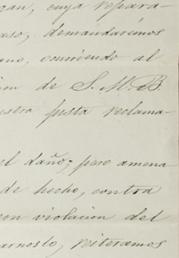 can, cuya repara-
aso, demandaríamos
ano, omitiendo al
de S. M. B
estra justa reclama-
el daño; pero amena
de hecho, contra
con violacion del
arnoslo, reiteramos